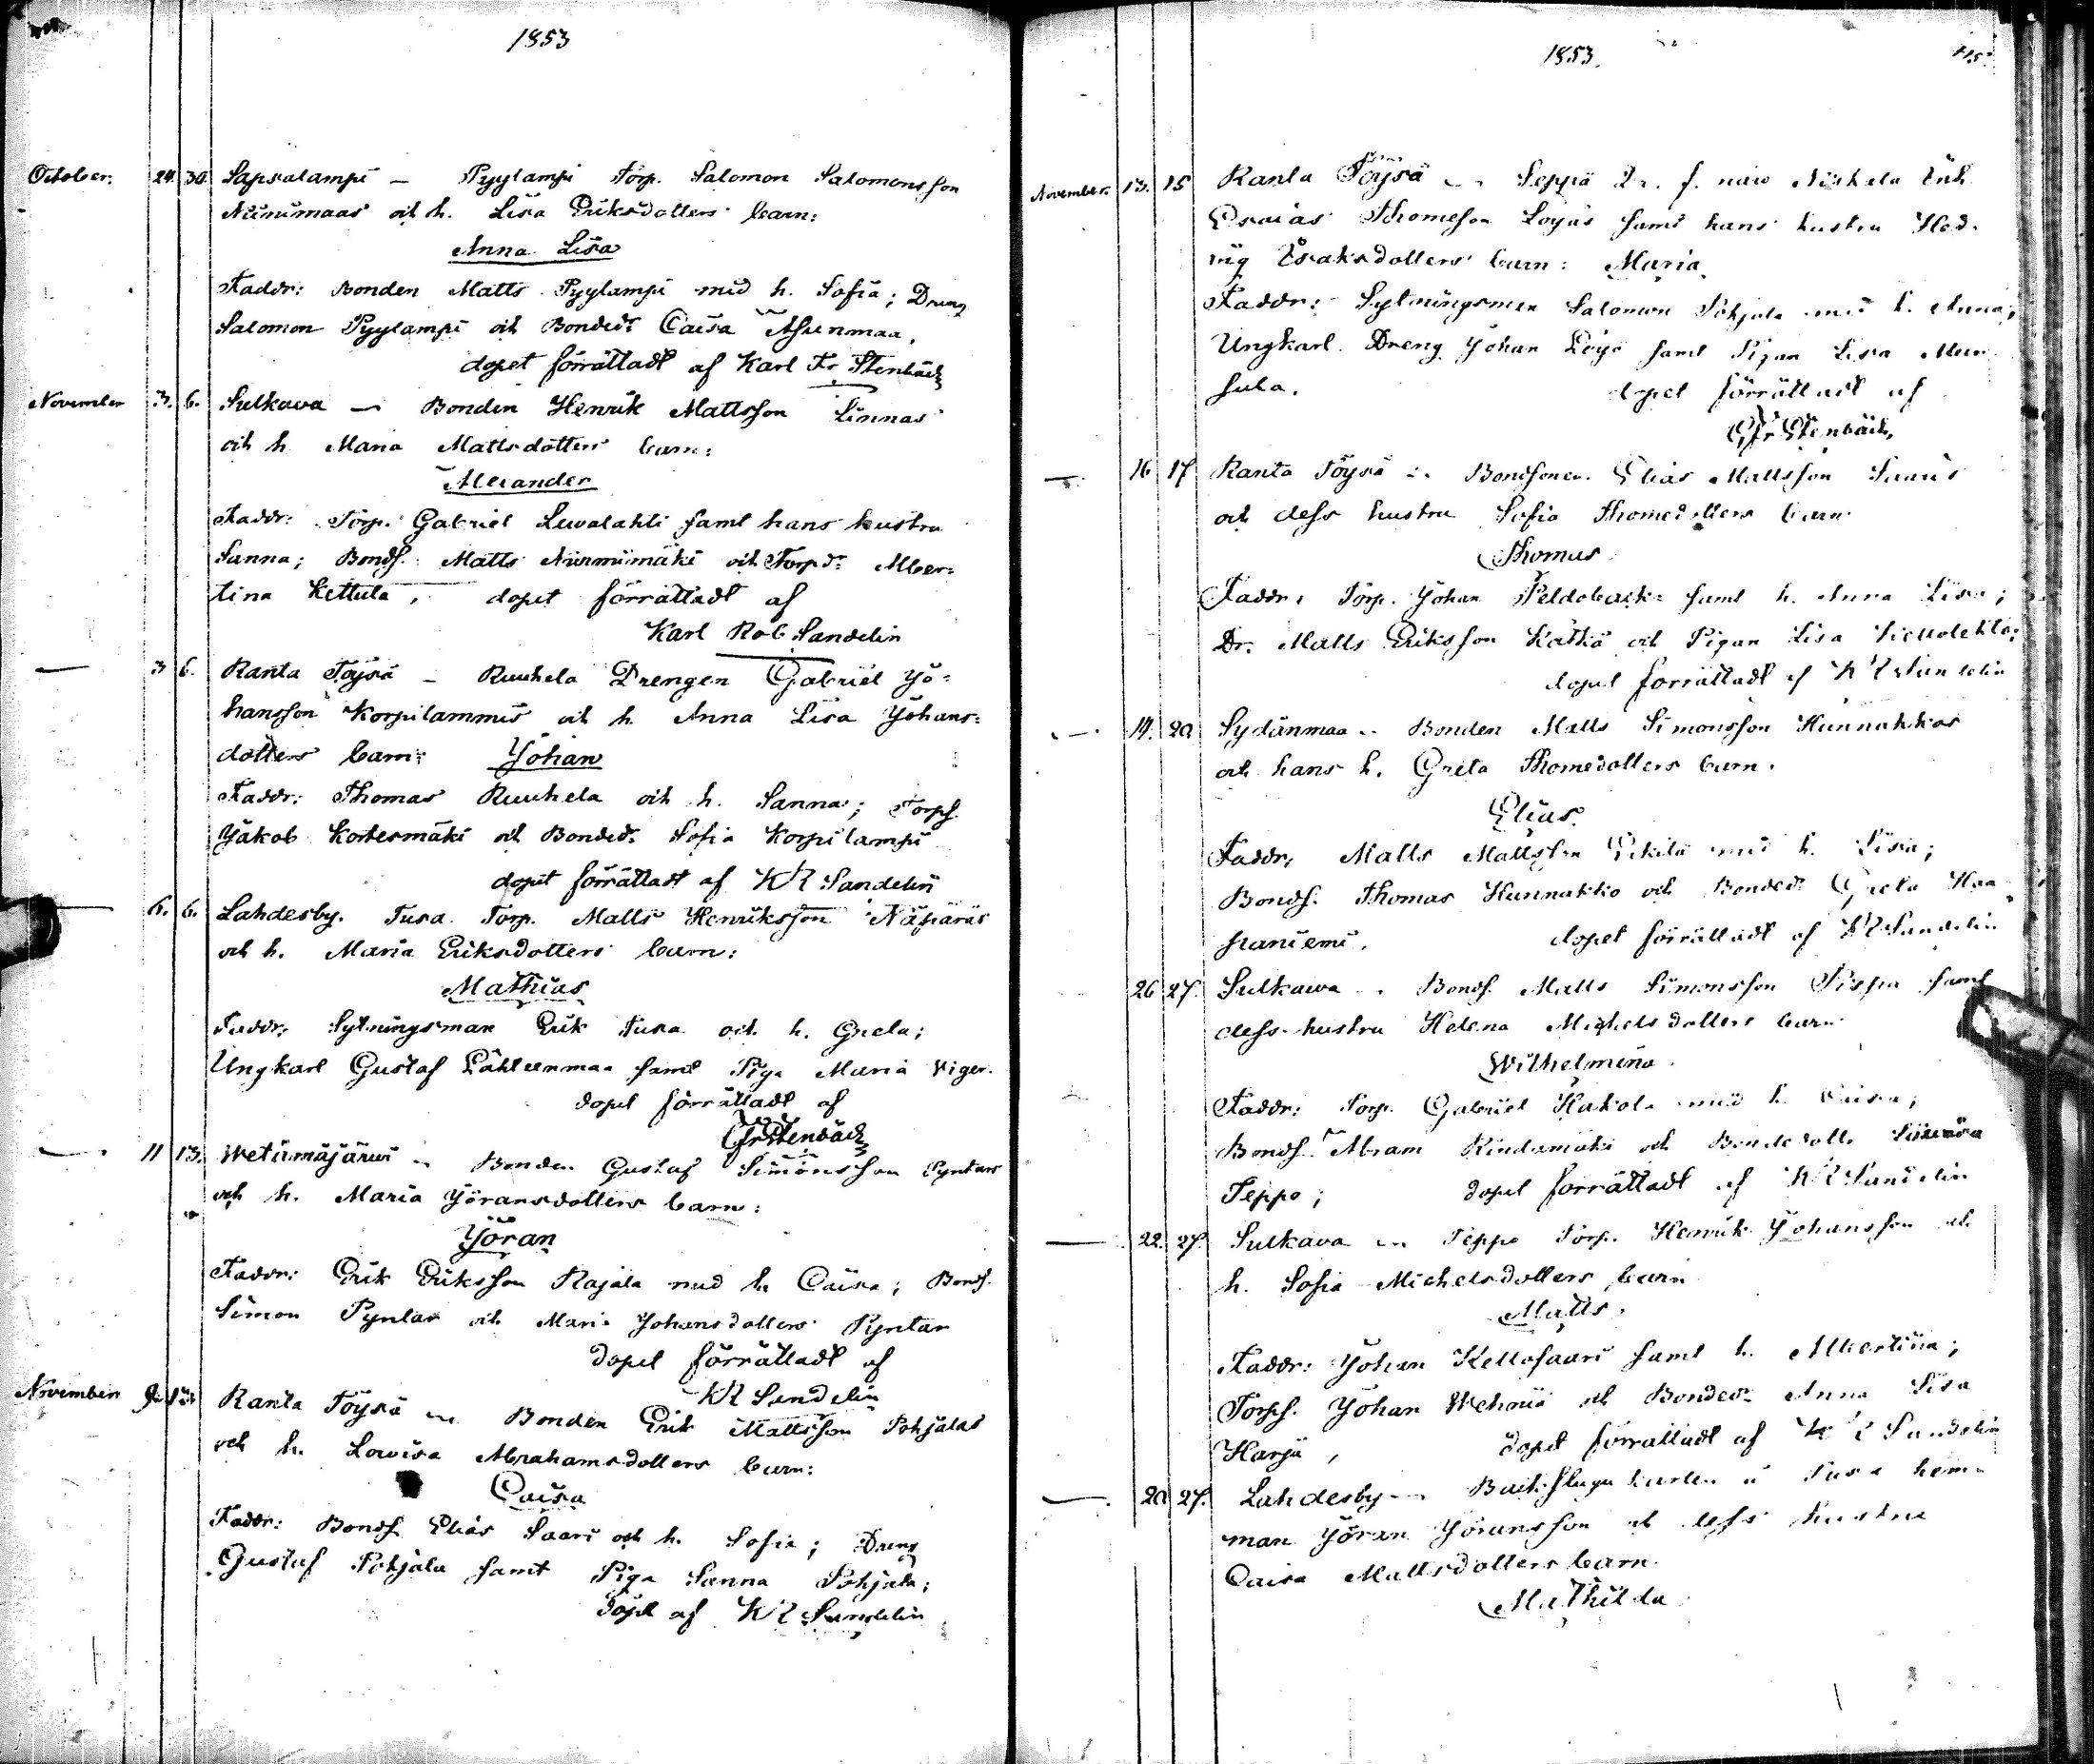 1853
October. 24. 30. Sapsalampi — Pyylampi Torp. Salomon Salomonsson
Niinimaas och h. Lisa Eriksdotters barn:
Anna Lisa
Faddr: Bonden Matts Pyylampi med h. Sofia; Dreng
Salomon Pyylampi och Bonded: Caisa Asunmaa,
dopet förrättadt af Karl Fr. Stenbäck
November 3. 6. Sulkava — Bonden Henrik Mattsson Linnas
och h Maria Mattsdotters barn:
Alexander
Faddr: Torp. Gabriel Levalahti samt hans hustru
Sanna; Bonds. Matts Niinimäki och Torpd: Alber:
tina Kettula, dopet förrättadt af
Karl Rob. Sandelin
— 3 6. Ranta Töysä — Ruuhela Drengen Gabriel Jo:
hansson Korpilammis och h Anna Lisa Johans:
dotters barn: Johan
Faddr: Thomas Ruuhela och h. Sanna; Torps
Jakob Koskesmäki och Bonded: Sofia Korpilampi
dopet förrättadt af KR Sandelin
— 6. 6. Lahdesby. Tusa Torp. Matts Henriksson Näpiäräs
och h. Maria Eriksdotters barn:
Mathias
Faddr: Sytningsman Erik Tusa och h. Greta;
Ungkarl Gustaf Lähteenmaa samt Piga Maria Viger.
dopet förrättadt af
CFr Stenbäck
— 11 13. Wetämäjärvi — Bonden Gustaf Simonsson Pyntars
och h. Maria Jöransdotters barn:
Jöran
Faddr: Erik Eriksson Rajala med h. Caisa; Bonds.
Simon Pyntar och Maria Johansdotters Pyntar
dopet förrättadt af
KR Sandelin
November 9. 13 Ranta Töysä — Bonden Erik Mattsson Pohjalas
och h. Lovisa Abrahamsdotters barn:
Caisa
Faddr: Bonds Elias Saari och h. Sofia; Dreng
Gustaf Pohjala samt Piga Sanna Pohjala;
Döpt af KR Sandelin
1853.
115
November. 13. 15 Ranta Töysä — Seppä Dr. f. Inh.
Esaias Thomesson Loyas samt hans hustru Hed.
vig Esaksdotters barn: Maria.
Faddr: Sytningsman Salomon Pohjala med h. Anna;
Ungkarl Dreng Johan Löyä samt Pigan Lisa
sula. dopet förrättadt af
CFr Stenbäck
— 16 17 Ranta Töysä — Bondsonen Elias Mattsson Saaris
och dess hustru Sofia Thomedotters barn
Thomas
Faddr: Torp. Johan Peldoback samt h. Anna Lisa;
Dr. Matts Eriksson Kätkä och Pigan Lisa
dopet förrättadt af KR Sandelin
— 14. 20 Sydänmaa — Bonden Matts Simonsson Hunnakkos
och hans h. Greta Thomedotters barn.
Elias.
Faddr: Matts Mattsson med h. Lisa;
Bonds. Thomas Hunnakko och Bonded: Greta Haa
paniemi. dopet förrättadt af KR Sandelin
26 27. Sulkawa — Bonds. Matts Simonsson Pispa samt
dess hustru Helena Michelsdotters barn
Wilhelmina.
Faddr: Torp. Gabriel Hakola med h. Caisa;
Bonds. Abram Rindamäki och Bondedotter Lovisa
Teppo; dopet förrättadt af KR Sandelin
— 22. 27. Sulkava — Teppo Torp. Henrik Johansson och
h. Sofia Michelsdotters barn
Matts.
Faddr: Johan Kellosaari samt h. Albertina;
Torps. Johan Wehniä och Bonded: Anna Lisa
Harju, dopet förrättadt af KR Sandelin
— 20 27. Lahdesby — Backstugu karlen å Tusa hem-
man Jöran Jöransson och dess hustru
Caisa Mattsdotters barn
Mathilda